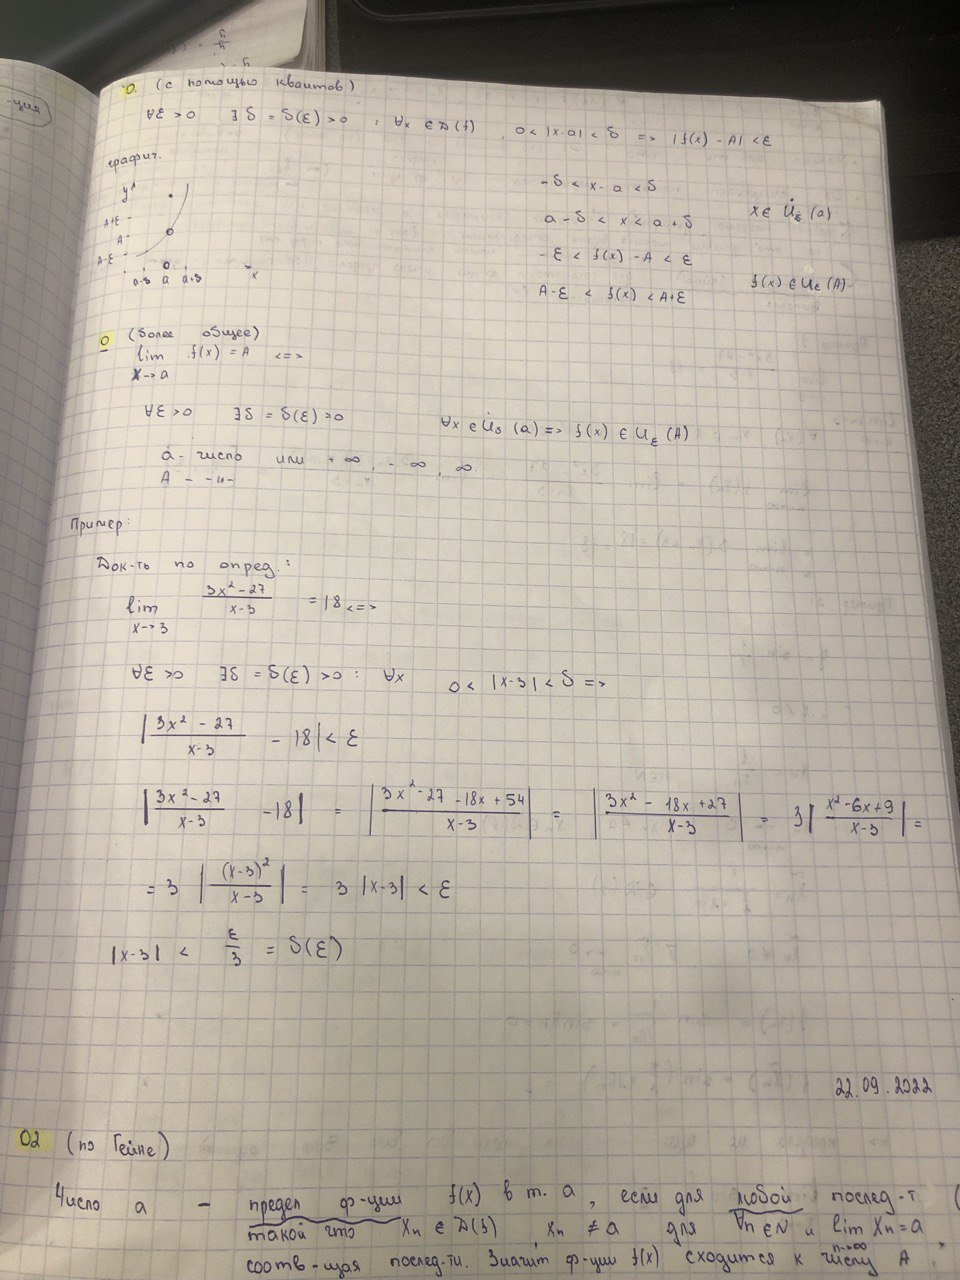 -ция
О. (с помощью квантов)
∀ε > 0 ∃ δ = δ(ε) > 0 : ∀x ∈ D(f) , 0 < |x-a| < δ => |f(x) - A| < ε
график.
y
A+ε
A
A-ε
a-δ a a+δ x
-δ < x - a < δ
a - δ < x < a + δ x ∈ U̇δ (a)
-ε < f(x) - A < ε
A-ε < f(x) < A+ε f(x) ∈ Uε (A)
О (более общее)
lim f(x) = A <=>
x→a
∀ε > 0 ∃δ = δ(ε) > 0 ∀x ∈ U̇δ (a) => f(x) ∈ Uε (A)
a - число или + ∞ , - ∞ , ∞
A - -//-
Пример:
Док-ть по опред.:
lim (3x² - 27)/(x-3) = 18 <=>
x→3
∀ε > 0 ∃δ = δ(ε) > 0 : ∀x 0 < |x-3| < δ =>
|(3x² - 27)/(x-3) - 18| < ε
|(3x² - 27)/(x-3) - 18| = |(3x² - 27 - 18x + 54)/(x-3)| = |(3x² - 18x + 27)/(x-3)| = 3|(x² - 6x + 9)/(x-3)| =
= 3 |(x-3)²/(x-3)| = 3 |x-3| < ε
|x-3| < ε/3 = δ(ε)
22.09.2022
О2 (по Гейне)
Число a - предел ф-ции f(x) в т. a , если для любой послед-т. (
такой что xn ∈ D(f) xn ≠ a для ∀n ∈ N и lim xn = a ,
n→∞
соотв-щая послед-ти. Значит ф-ции f(x) сходится к числу A